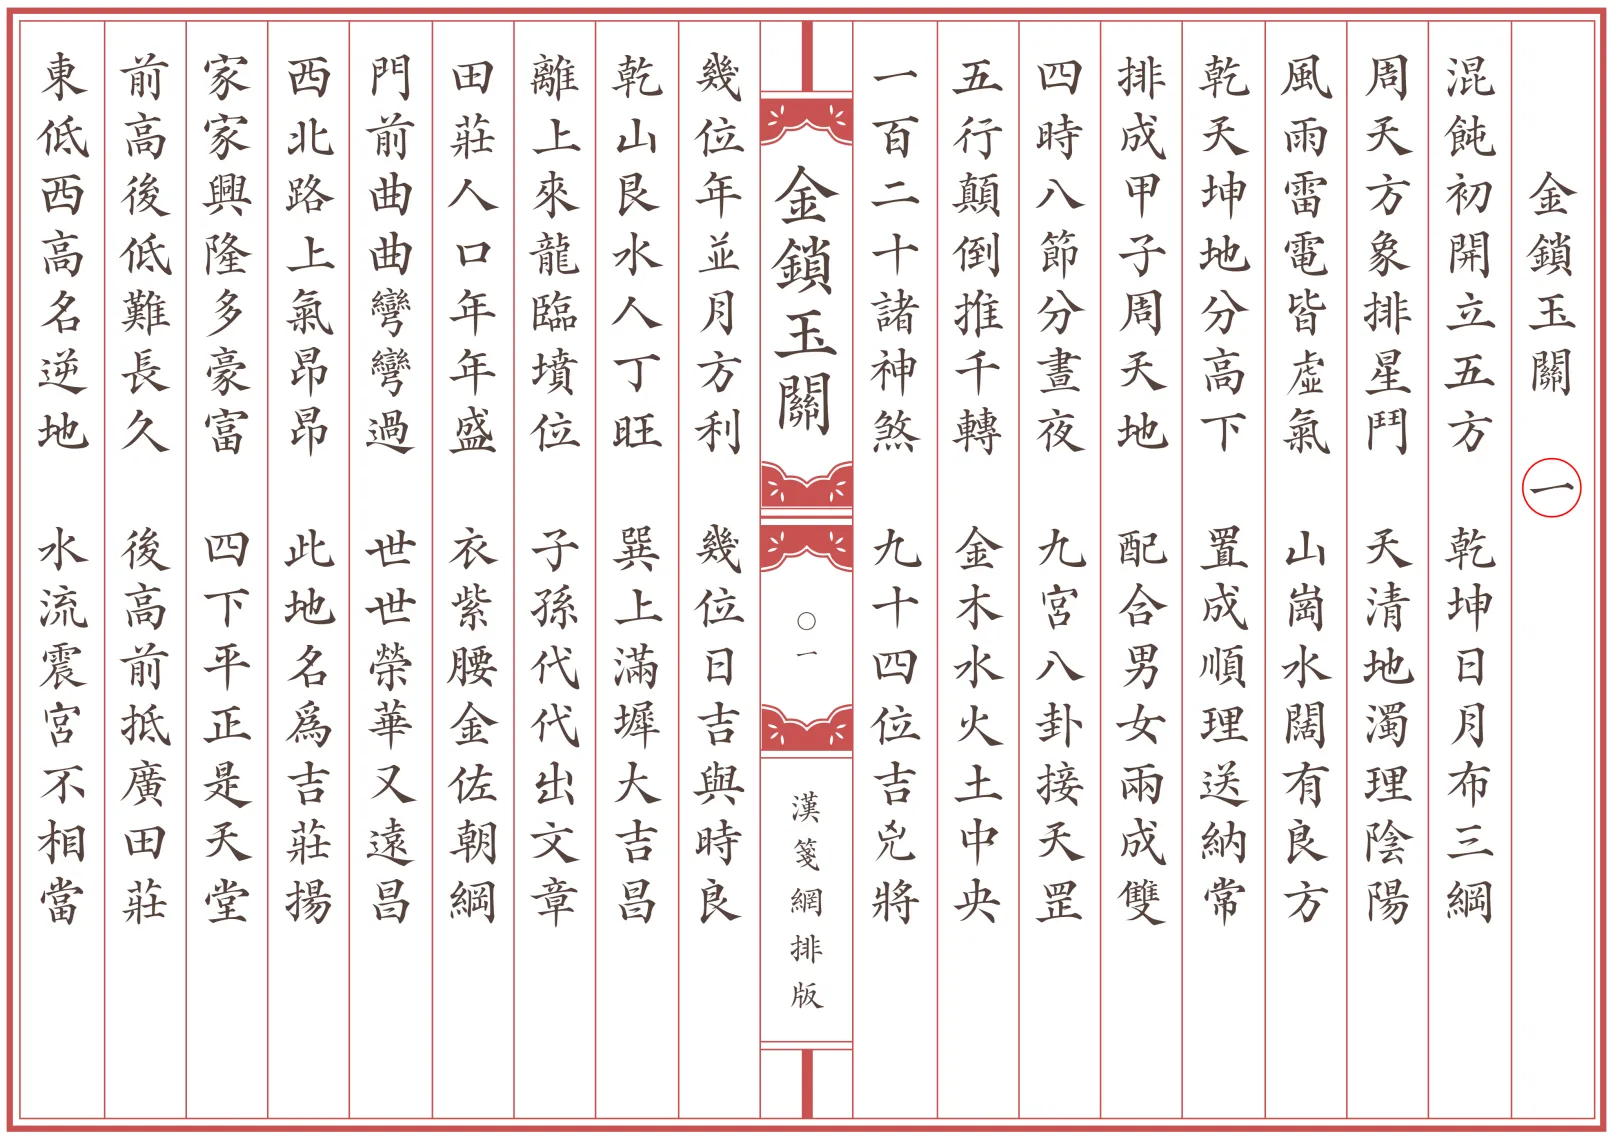 金鎖玉關 一
混飩初開立五方 乾坤日月布三綱
周天方象排星鬥 天清地濁理陰陽
風雨雷電皆虛氣 山崗水闊有良方
乾天坤地分高下 置成順理送納常
排成甲子周天地 配合男女兩成雙
四時八節分晝夜 九宮八卦接天罡
五行顛倒推千轉 金木水火土中央
一百二十諸神煞 九十四位吉兇將
金鎖玉關
〇一
漢箋網排版
幾位年並月方利 幾位日吉與時良
乾山艮水人丁旺 巽上滿墀大吉昌
離上來龍臨墳位 子孫代代出文章
田莊人口年年盛 衣紫腰金佐朝綱
門前曲曲彎彎過 世世榮華又遠昌
西北路上氣昂昂 此地名爲吉莊揚
家家興隆多豪富 四下平正是天堂
前高後低難長久 後高前抵廣田莊
東低西高名逆地 水流震宮不相當